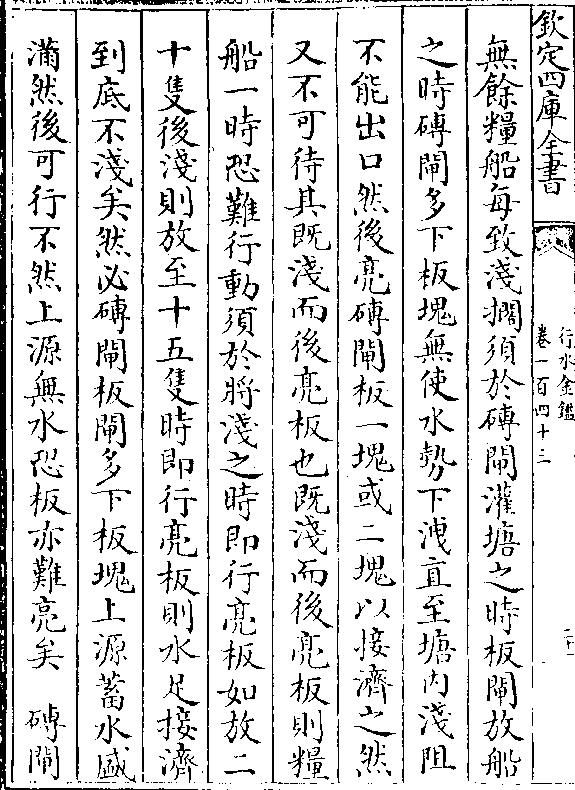 欽定四庫全書
行水金鑑
卷一百四十三
二十一
無餘糧船每致淺擱須於磚閘灌塘之時板閘放船
之時磚閘多下板塊無使水勢下洩直至塘内淺阻
不能出口然後亮磚閘板一塊或二塊以接濟之然
又不可待其既淺而後亮板也既淺而後亮板則糧
船一時恐難行動須於將淺之時即行亮板如放二
十隻後淺則放至十五隻時即行亮板則水足接濟
到底不淺矣然必磚閘板閘多下板塊上源蓄水盛
滿然後可行不然上源無水恐板亦難亮矣　磚閘